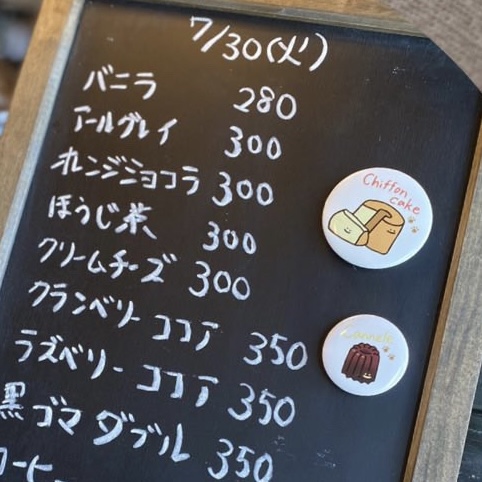 7/30(火)
バニラ 280
アールグレイ 300
オレンジショコラ 300
ほうじ茶 300
クリームチーズ 300
クランベリーココア 350
ラズベリーココア 350
黒ゴマダブル 350
コーヒー
Chiffon
cake